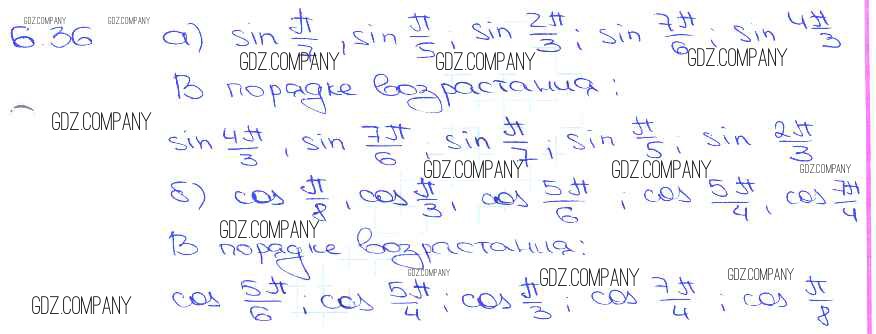 GDZ.COMPANY GDZ.COMPANY
6.36 а) sin π/7, sin π/5; sin 2π/3; sin 7π/6; sin 4π/3
GDZ.COMPANY GDZ.COMPANY GDZ.COMPANY
В порядке возрастания:
GDZ.COMPANY
sin 4π/3, sin 7π/6, sin π/7; sin π/5; sin 2π/3
GDZ.COMPANY GDZ.COMPANY GDZ.COMPANY
б) cos π/8, cos π/3, cos 5π/6; cos 5π/4, cos 7π/4
GDZ.COMPANY
В порядке возрастания:
GDZ.COMPANY GDZ.COMPANY GDZ.COMPANY
GDZ.COMPANY
cos 5π/6; cos 5π/4; cos π/3; cos 7π/4; cos π/8